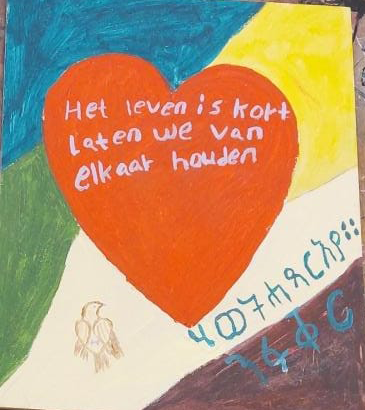 Het leven is kort
Laten we van
elkaar houden
ሂወት ሓጻር እያ።
ንፋቀር